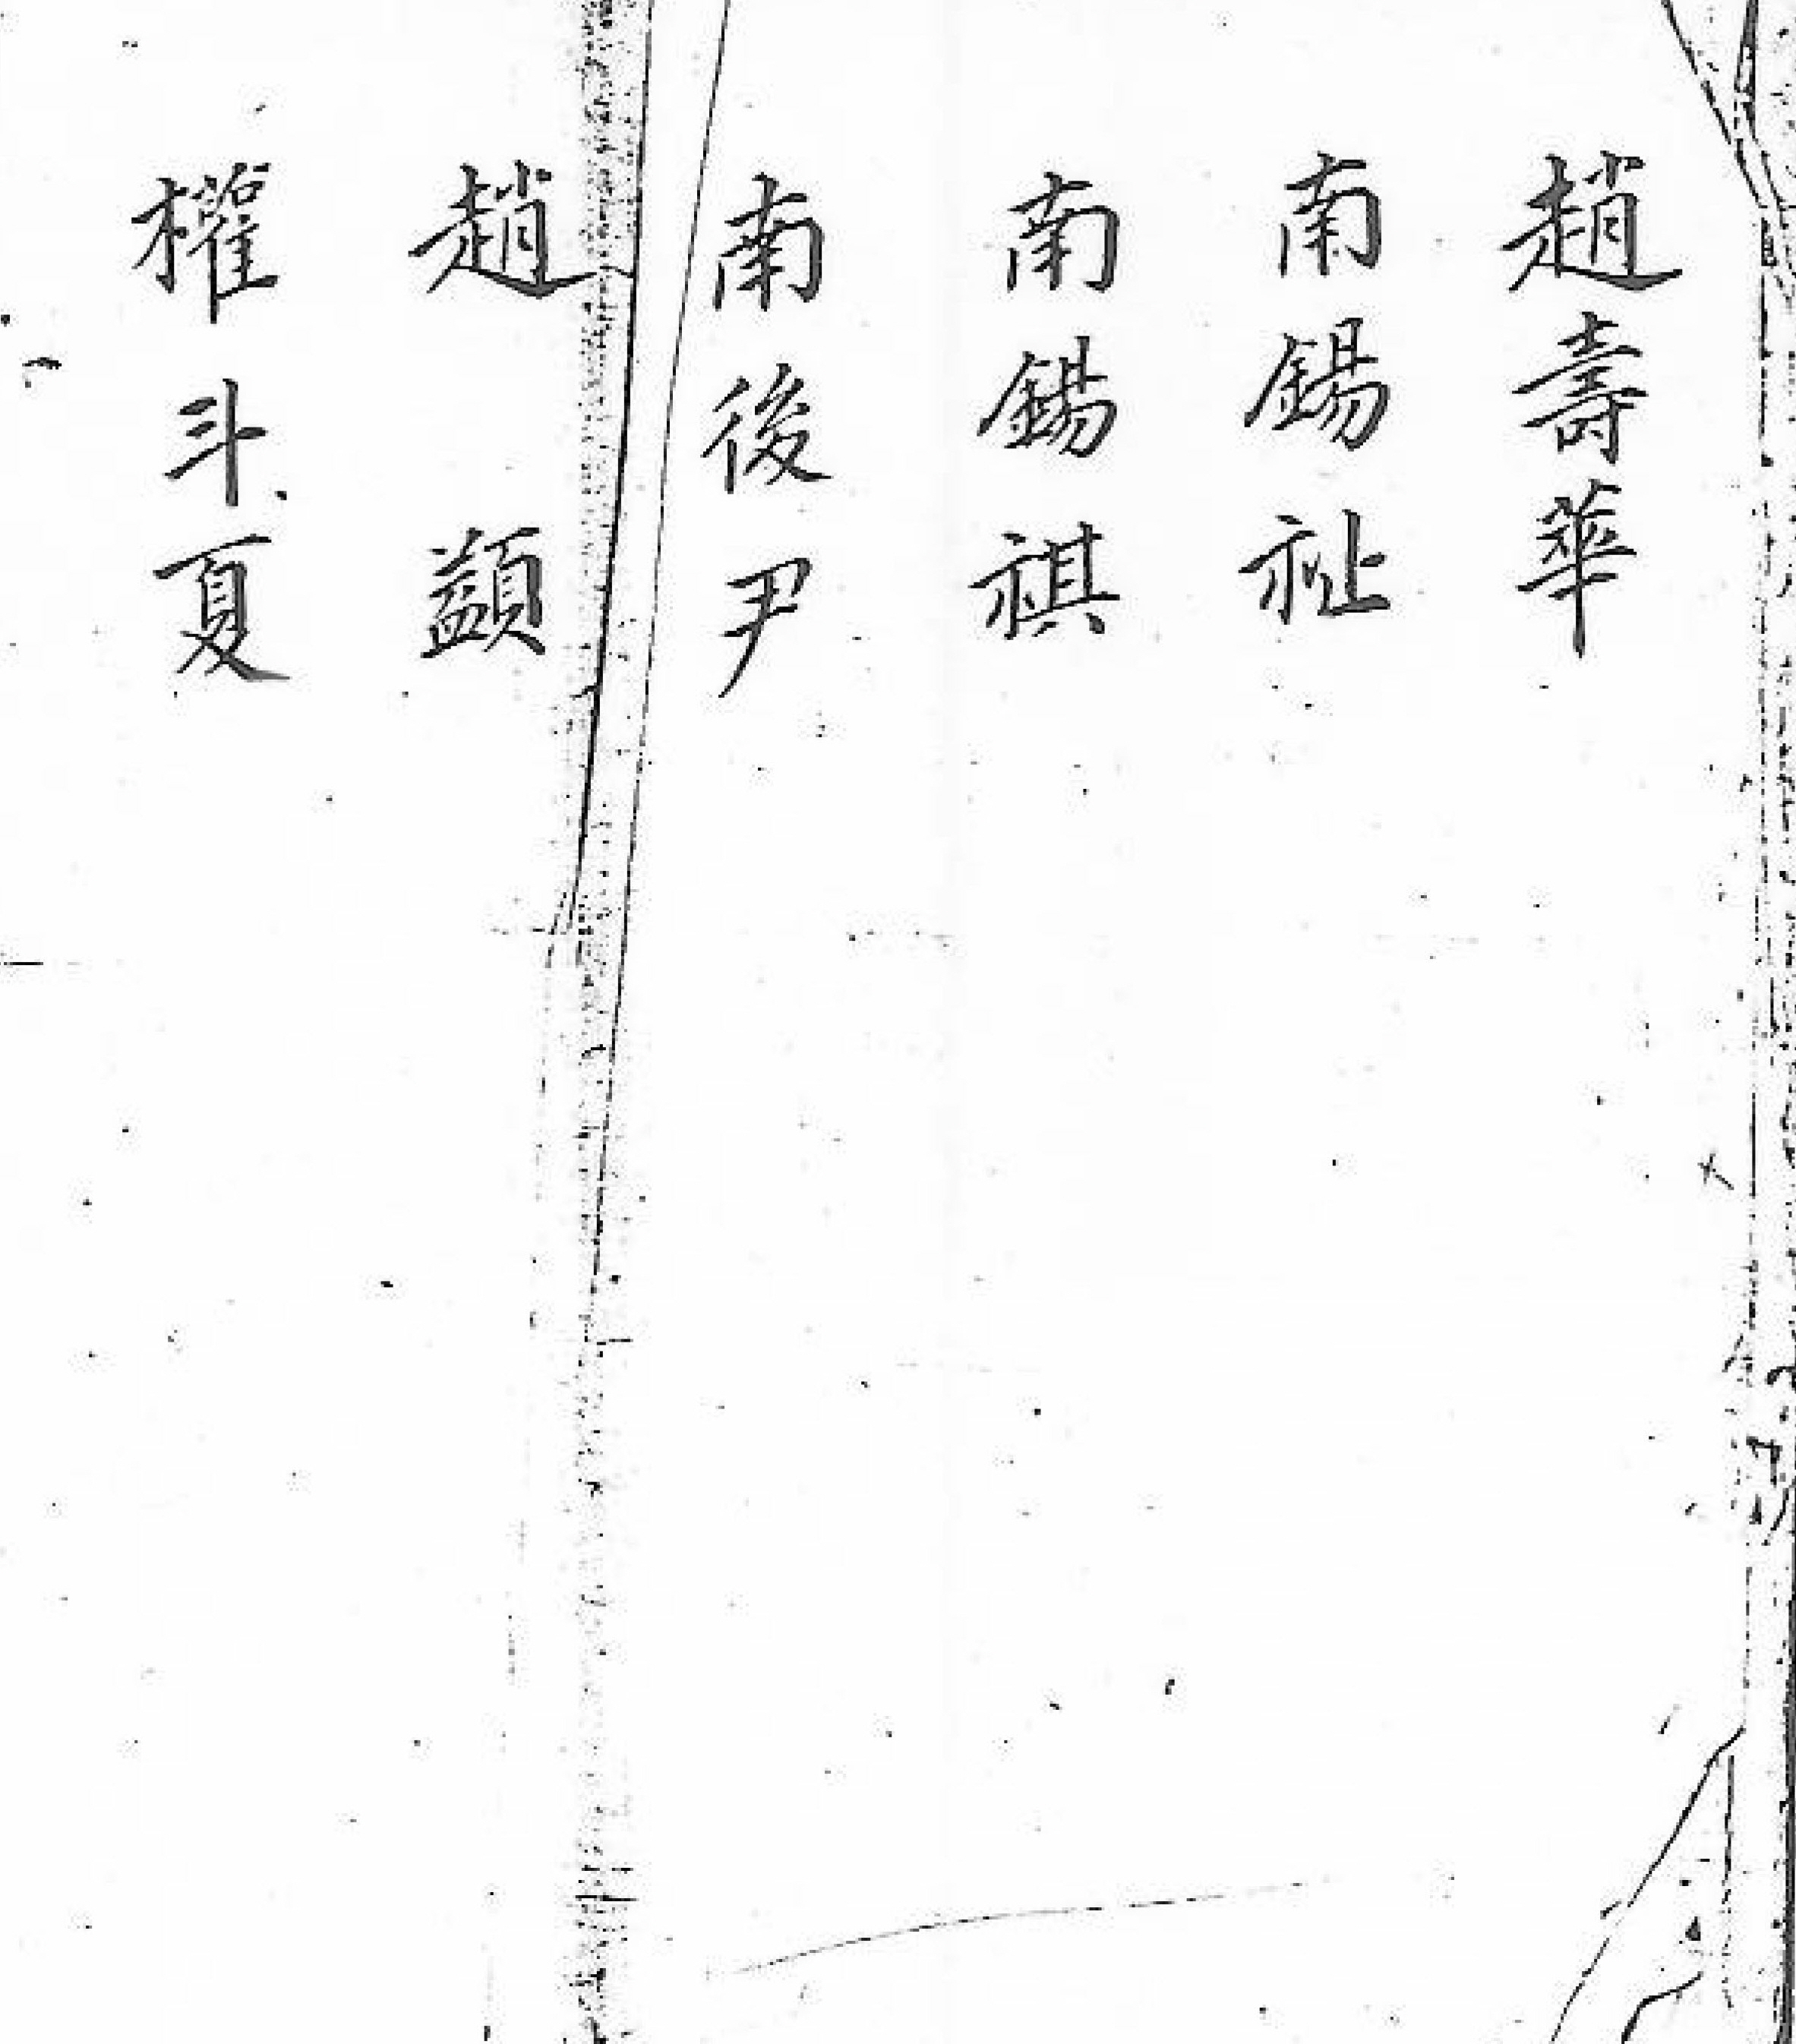 趙壽華
南錫祉
南錫祺
南後尹
趙顥
權斗夏